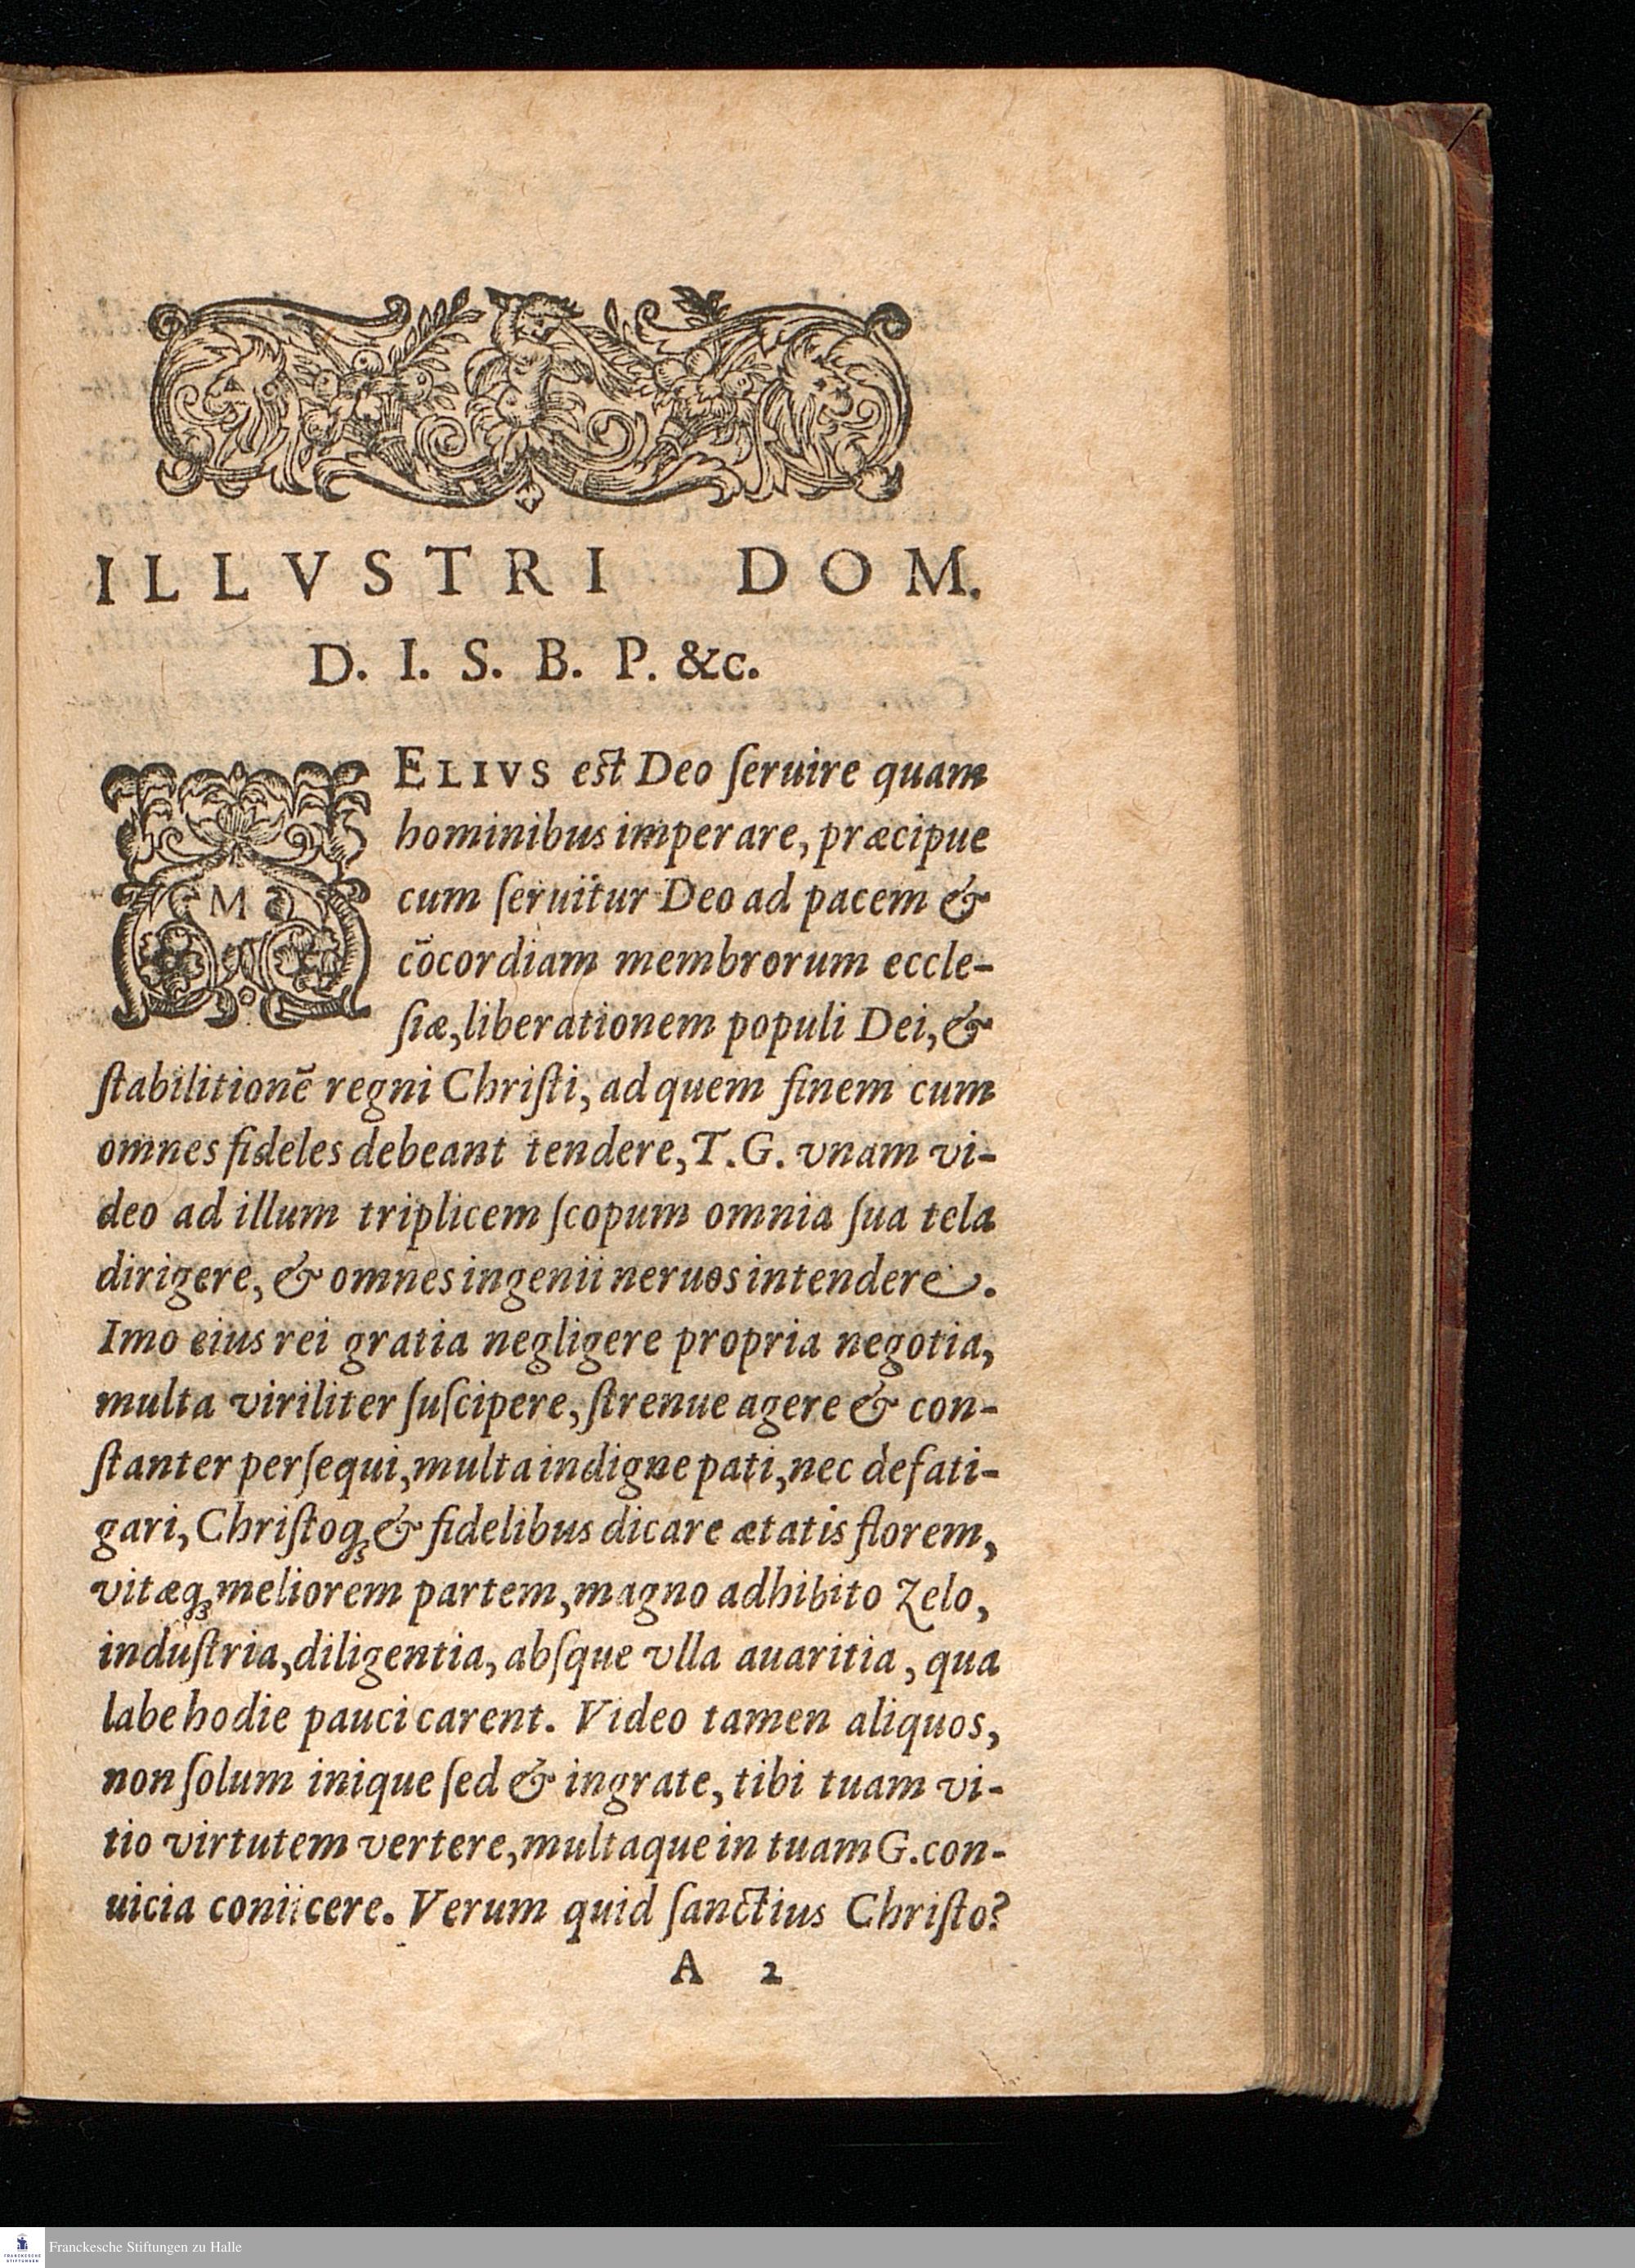 ILLVSTRI DOM.
D. I. S. B. P. &c.
MELIVS est Deo ſeruire quam
hominibus imperare, præcipue
cum ſeruitur Deo ad pacem &
cõcordiam membrorum eccle-
ſiæ, liberationem populi Dei, &
ſtabilitionẽ regni Chriſti, ad quem finem cum
omnes fideles debeant tendere, T.G. vnam vi-
deo ad illum triplicem ſcopum omnia ſua tela
dirigere, & omnes ingenii neruos intendere.
Imo eius rei gratia negligere propria negotia,
multa viriliter ſuſcipere, ſtrenue agere & con-
ſtanter perſequi, multa indigne pati, nec defati-
gari, Chriſtoq; & fidelibus dicare ætatis florem,
vitæq; meliorem partem, magno adhibito zelo,
induſtria, diligentia, abſque vlla auaritia, qua
labe hodie pauci carent. Video tamen aliquos,
non ſolum inique ſed & ingrate, tibi tuam vi-
tio virtutem vertere, multaque in tuam G. con-
uicia coniicere. Verum quid ſanctius Chriſto?
A 2
FRANCKESCHE STIFTUNGEN
Franckesche Stiftungen zu Halle